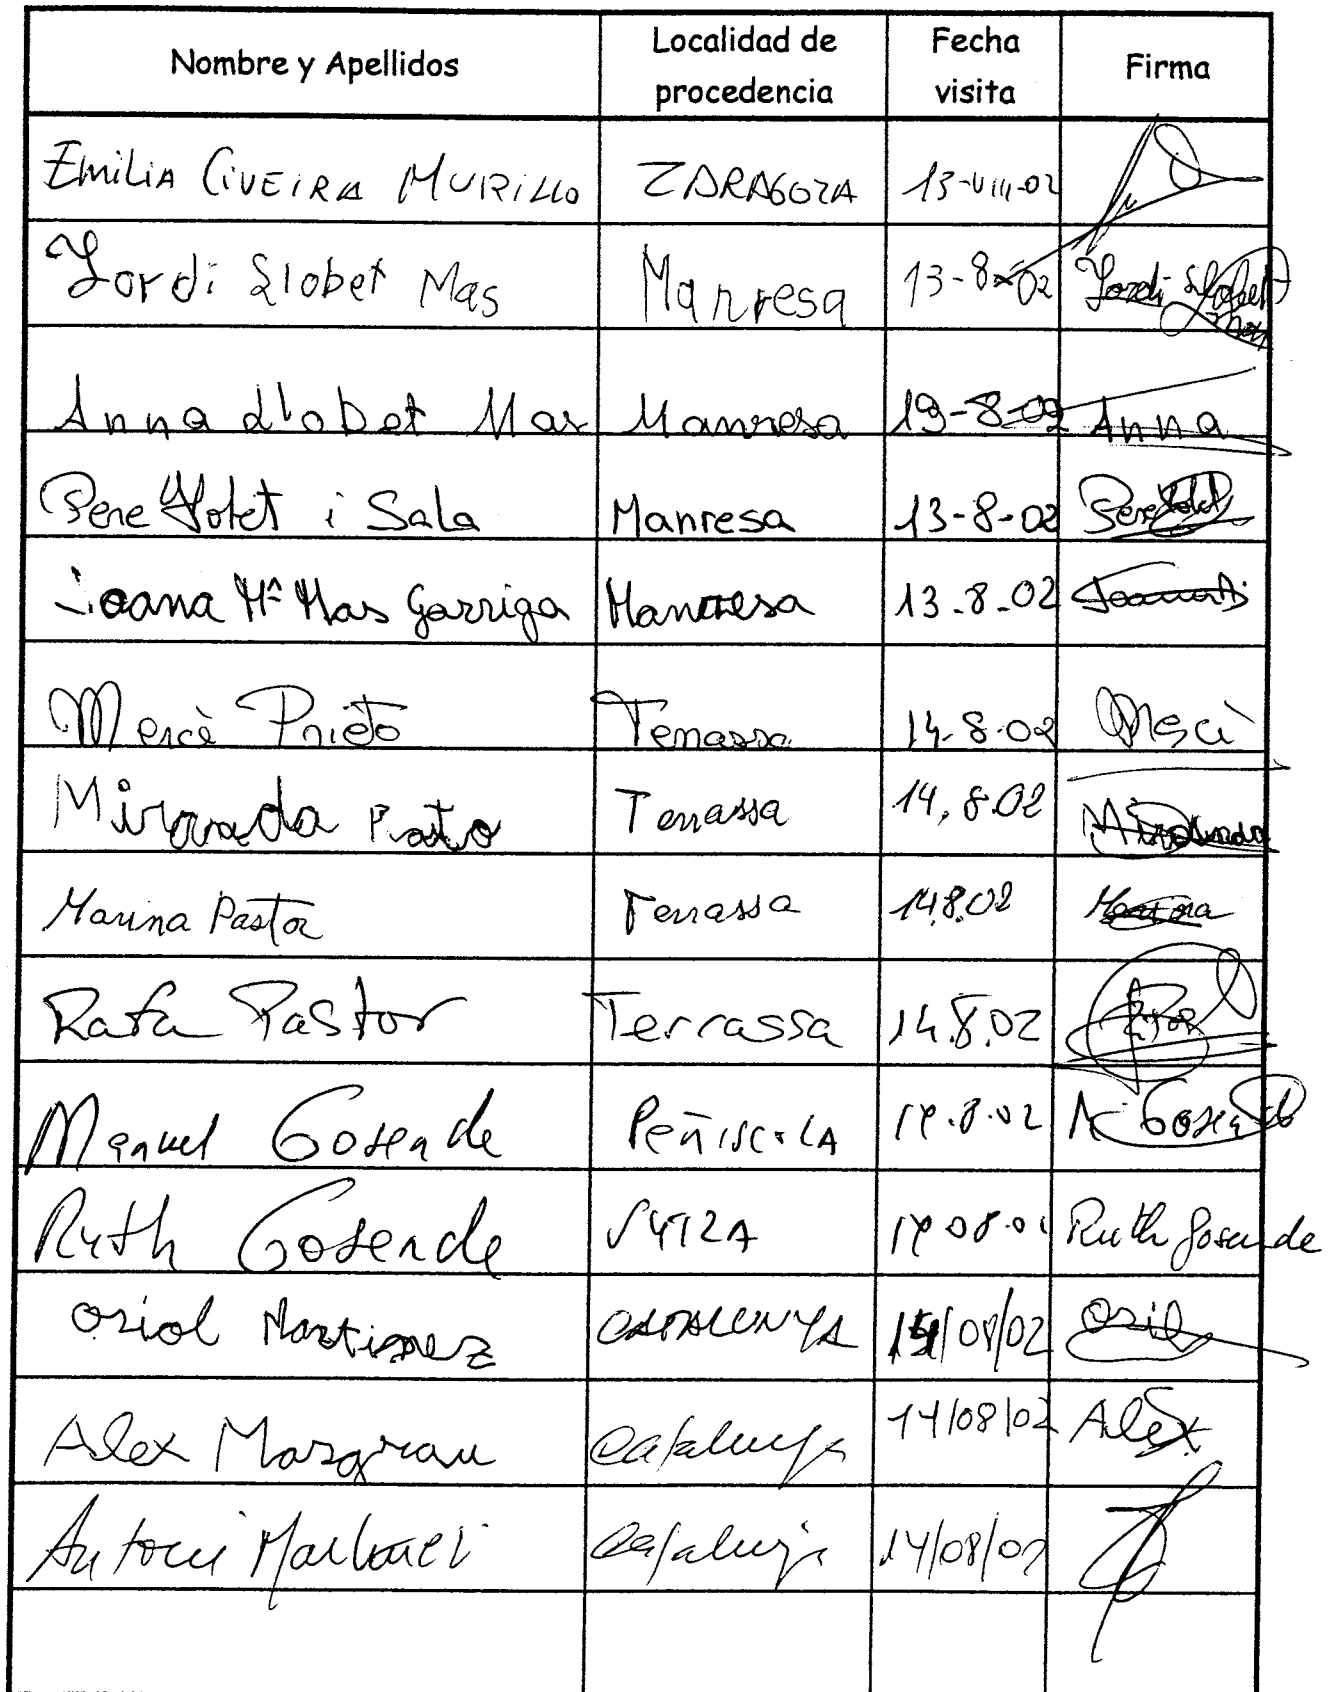 Nombre y Apellidos Localidad de procedencia Fecha visita Firma
Emilia CIVEIRA MURILLO ZARAGOZA 13-VIII-02
Jordi Llobet Mas Manresa 13-8-02 Jordi Llobet Mas
Anna Llobet Mas Manresa 13-8-02 Anna
Pere Llobet i Sala Manresa 13-8-02 Pere Llobet
Joana Mª Mas Garriga Manresa 13-8-02
Mercè Prieto Terrassa 14-8-02 Mercè
Miranda Terrassa 14,8.02 Miranda
Marina Pastor Terrassa 14.8.02 Marina
Rafa Pastor Terrassa 14.8.02
Manuel Gosende Peñiscola 14.8.02 M. Gosende
Ruth Gosende Ruth Gosende
Oriol Martinez CATALUNYA 14/08/02 Oriol
Alex Masgrau Catalunya 14/08/02 Alex
Antoni Martinez Catalunya 14/08/02